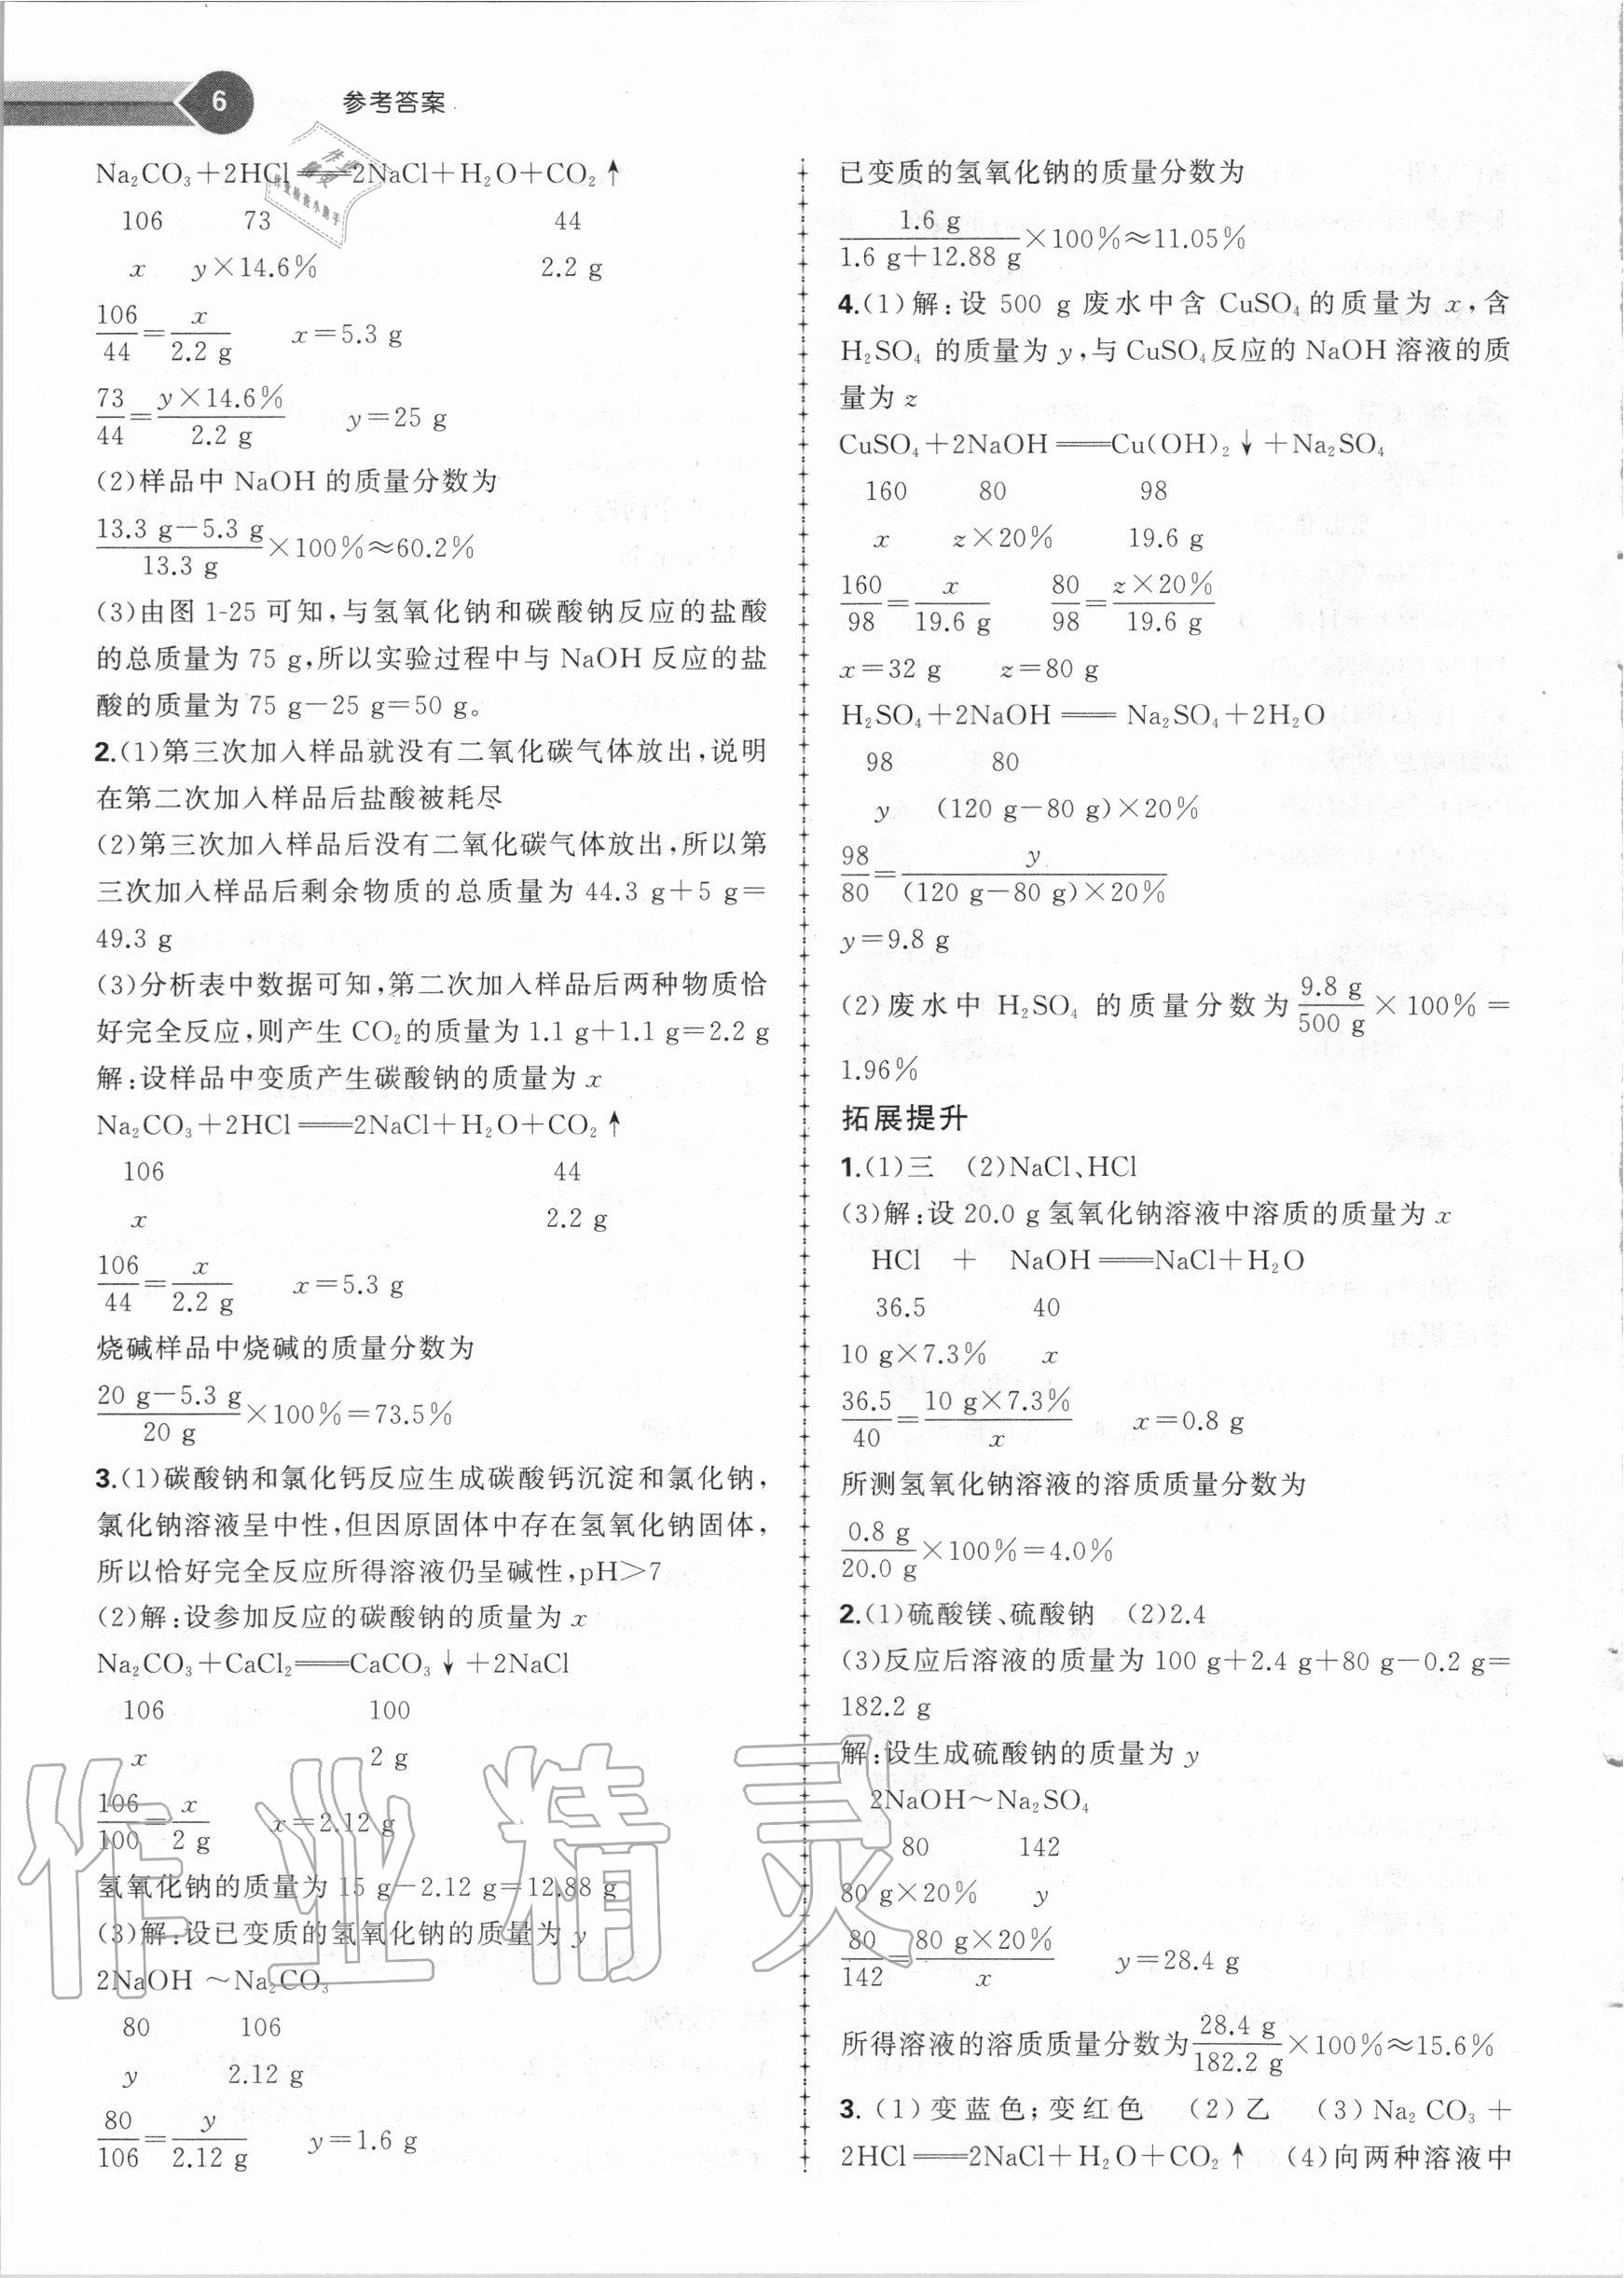 6
参考答案
Na₂CO₃+2HCl══2NaCl+H₂O+CO₂↑
106 73 44
x y×14.6% 2.2 g
106/44=x/2.2 g x=5.3 g
73/44=y×14.6%/2.2 g y=25 g
(2)样品中 NaOH 的质量分数为
13.3 g−5.3 g/13.3 g×100%≈60.2%
(3)由图 1-25 可知,与氢氧化钠和碳酸钠反应的盐酸
的总质量为 75 g,所以实验过程中与 NaOH 反应的盐
酸的质量为 75 g−25 g=50 g。
2.(1)第三次加入样品就没有二氧化碳气体放出,说明
在第二次加入样品后盐酸被耗尽
(2)第三次加入样品后没有二氧化碳气体放出,所以第
三次加入样品后剩余物质的总质量为 44.3 g+5 g=
49.3 g
(3)分析表中数据可知,第二次加入样品后两种物质恰
好完全反应,则产生 CO₂的质量为 1.1 g+1.1 g=2.2 g
解:设样品中变质产生碳酸钠的质量为 x
Na₂CO₃+2HCl══2NaCl+H₂O+CO₂↑
106 44
x 2.2 g
106/44=x/2.2 g x=5.3 g
烧碱样品中烧碱的质量分数为
20 g−5.3 g/20 g×100%=73.5%
3.(1)碳酸钠和氯化钙反应生成碳酸钙沉淀和氯化钠,
氯化钠溶液呈中性,但因原固体中存在氢氧化钠固体,
所以恰好完全反应所得溶液仍呈碱性,pH>7
(2)解:设参加反应的碳酸钠的质量为 x
Na₂CO₃+CaCl₂══CaCO₃↓+2NaCl
106 100
x 2 g
106/100=x/2 g x=2.12 g
氢氧化钠的质量为 15 g−2.12 g=12.88 g
(3)解:设已变质的氢氧化钠的质量为 y
2NaOH ~Na₂CO₃
80 106
y 2.12 g
80/106=y/2.12 g y=1.6 g
已变质的氢氧化钠的质量分数为
1.6 g/1.6 g+12.88 g×100%≈11.05%
4.(1)解:设 500 g 废水中含 CuSO₄的质量为 x,含
H₂SO₄ 的质量为 y,与CuSO₄反应的 NaOH 溶液的质
量为 z
CuSO₄+2NaOH══Cu(OH)₂↓+Na₂SO₄
160 80 98
x z×20% 19.6 g
160/98=x/19.6 g 80/98=z×20%/19.6 g
x=32 g z=80 g
H₂SO₄+2NaOH══Na₂SO₄+2H₂O
98 80
y (120 g−80 g)×20%
98/80=y/(120 g−80 g)×20%
y=9.8 g
(2)废水中 H₂SO₄ 的质量分数为9.8 g/500 g×100%=
1.96%
拓展提升
1.(1)三 (2)NaCl、HCl
(3)解:设 20.0 g 氢氧化钠溶液中溶质的质量为 x
HCl + NaOH══NaCl+H₂O
36.5 40
10 g×7.3% x
36.5/40=10 g×7.3%/x x=0.8 g
所测氢氧化钠溶液的溶质质量分数为
0.8 g/20.0 g×100%=4.0%
2.(1)硫酸镁、硫酸钠 (2)2.4
(3)反应后溶液的质量为 100 g+2.4 g+80 g−0.2 g=
182.2 g
解:设生成硫酸钠的质量为 y
2NaOH~Na₂SO₄
80 142
80 g×20% y
80/142=80 g×20%/x y=28.4 g
所得溶液的溶质质量分数为28.4 g/182.2 g×100%≈15.6%
3.(1)变蓝色;变红色 (2)乙 (3)Na₂CO₃+
2HCl══2NaCl+H₂O+CO₂↑ (4)向两种溶液中
作业精灵